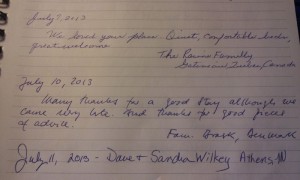 July 7, 2013
We loved your place. Quiet, comfortable beds,
great welcome.
The Family
Canada
July 10, 2013
Many thanks for a good stay although we
came very late. And thanks for good pieces
of advice.
Fam. Denmark
July 11, 2013 - Dave & Sandra Wilkey Athens,